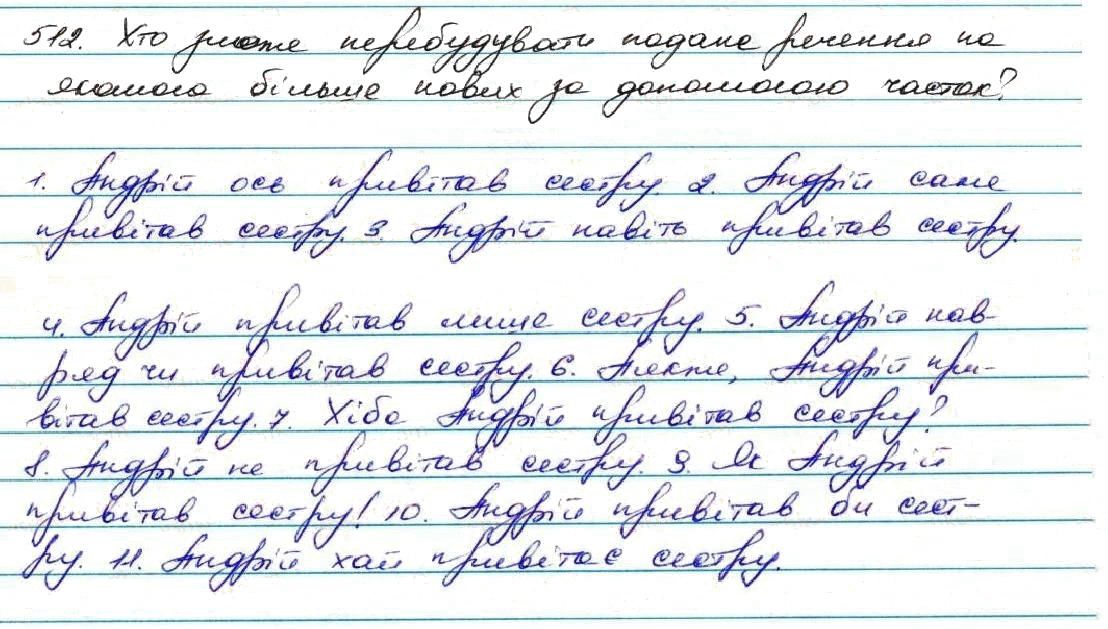 512. Хто зможе перебудувати подане речення на
якомога більше нових за допомогою часток?
1. Андрій ось привітав сестру. 2. Андрій саме
привітав сестру. 3. Андрій навіть привітав сестру.
4. Андрій привітав лише сестру. 5. Андрій нав-
ряд чи привітав сестру. 6. Авжеж, Андрій при-
вітав сестру. 7. Хіба Андрій привітав сестру?
8. Андрій не привітав сестру. 9. Як Андрій
привітав сестру! 10. Андрій привітав би сест-
ру. 11. Андрій хай привітає сестру.